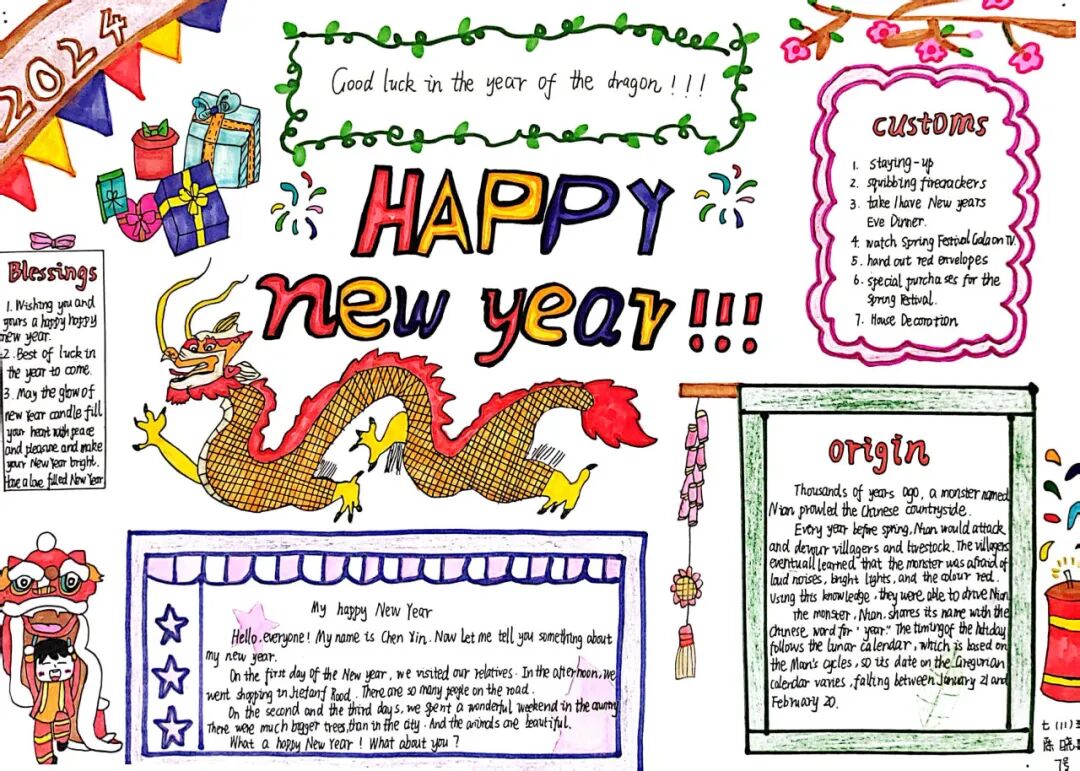 2024
Good luck in the year of the dragon!!!
HAPPY
new year!!!
customs
1. staying-up
2. squibbing firecrackers
3. take/have New years
Eve Dinner.
4. watch Spring Festival Gala on TV.
5. hard out red envelopes
6. special purchases for the
Spring Festival.
7. House Decoration
Blessings
1. Wishing you and
yours a happy happy
new year.
2. Best of luck in
the year to come.
3. May the glow of
new Year candle fill
your heart with peace
and pleasure and make
your New Year bright.
Have a love filled New Year
origin
Thousands of years ago, a monster named
Nian prowled the Chinese countryside.
Every year before spring, Nian would attack
and devour villagers and livestock. The villagers
eventuall learned that the monster was afraid of
loud noises, bright lights, and the colour red.
Using this knowledge, they were able to drive Nian
the monster, Nian, shares its name with the
Chinese word for "year." The timing of the holiday
follows the lunar calendar, which is based on
the Man's cycles, so its date on the Gregorian
calendar varies, falling between January 21 and
February 20.
My happy New Year
Hello, everyone! My name is Chen Yin. Now let me tell you something about
my new year.
On the first day of the New year, we visited our relatives. In the afternoon, we
went shopping in Jiefanf Road. There are so many people on the road.
On the second and the third days, we spent a wonderful weekend in the country
There were much bigger trees than in the city. And the animals are beautiful.
What a happy New Year! What about you?
七(11)
陈晓
7号